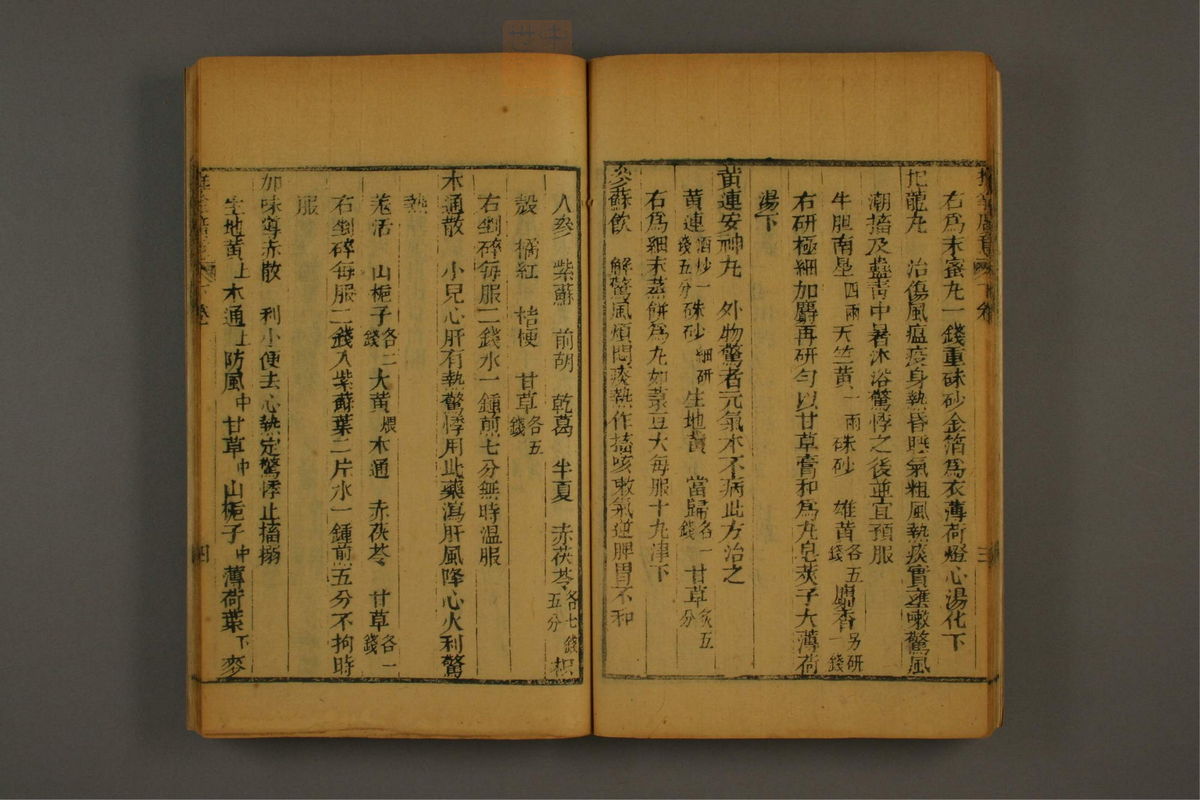 右爲末蜜丸一錢重硃砂金箔爲衣薄荷燈心湯化下
抱龍丸　治傷風瘟疫身熱昏睡氣粗風熱痰實壅嗽驚風
潮搐及蠱毒中暑沐浴驚悸之後並宜預服
牛胆南星四兩天竺黃一兩硃砂　雄黃各五錢麝香另研一錢
右研極細加麝再研勻以甘草膏和爲丸皂莢子大薄荷
湯下
黃連安神丸　外物驚者元氣本不病此方治之
黃連酒炒一錢五分硃砂細研　生地黃　當歸各一錢甘草炙五分
右爲細末蒸餅爲丸如菉豆大每服十丸津下
參蘇飲　解驚風煩悶痰熱作搐咳嗽氣逆脾胃不和
人參　紫蘇　前胡　乾葛　半夏　赤茯苓各七錢五分枳
殼　橘紅　桔梗　甘草各五錢
右剉碎每服二錢水一鍾煎七分無時温服
木通散　小兒心肝有熱驚悸用此藥瀉肝風降心火利驚
熱
羗活　山梔子各二錢大黃煨木通　赤茯苓　甘草各一錢
右剉碎每服二錢入紫蘇葉二片水一鍾煎五分不拘時
服
加味導赤散　利小便去心熱定驚悸止搐搦
生地黃上木通上防風中甘草中山梔子中薄荷葉下麥